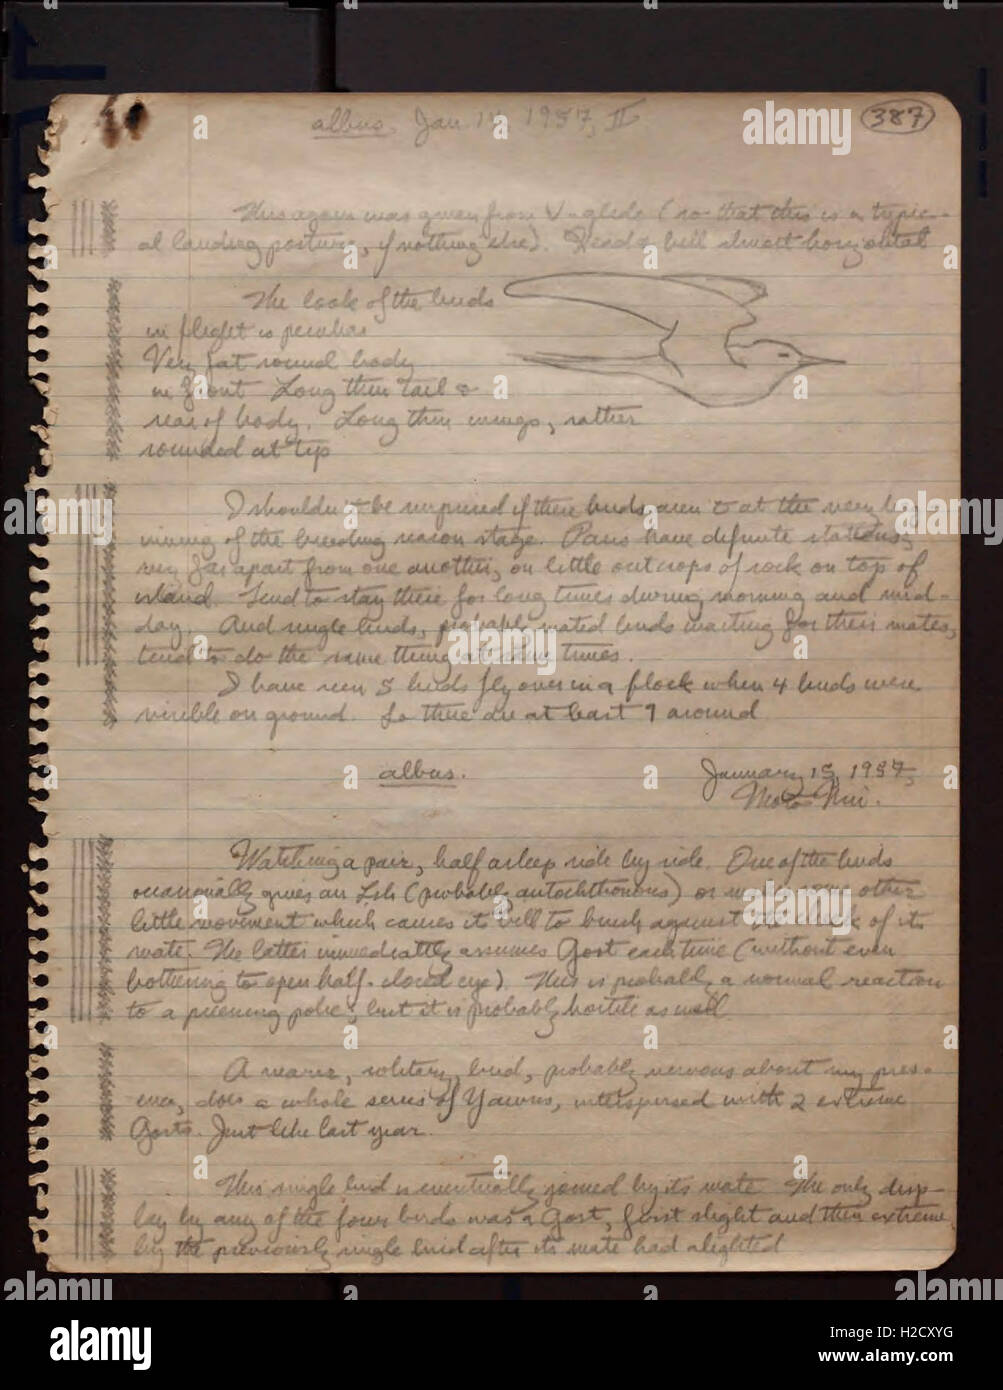 albus. Jan. 1957, II
387
This again was given from V-glide (so that this is a typic-
al landing posture, if nothing else). Head & bill almost horizontal
The look of the birds
in flight is peculiar
Very fat round body
in front Long thin tail &
rear of body. Long thin wings, rather
rounded at tip
I shouldn't be surprised if these birds aren't at the very beg-
inning of the breeding season stage. Pairs have definite stations,
very far apart from one another, on little outcrops of rock on top of
island. Tend to stay there for long times during morning and mid-
day. And single birds, probably mated birds waiting for their mates,
tend to do the same thing at same times.
I have seen 5 birds fly over in a flock when 4 birds were
visible on ground. So there are at least 9 around
albus.
January 15, 1957,
Moto Nui.
Watching a pair, half asleep side by side. One of the birds
occasionally gives an (probably autochthonous) or some other
little movement which causes its bill to brush against the cheek of its
mate. The latter immediately assumes Gost each time (without even
bothering to open half-closed eye). This is probably a normal reaction
to a preening poke; but it is probably hostile as well
A nearer, solitary, bird, probably nervous about my pres-
ence, does a whole series of Yawns, interspersed with 2 extreme
Gosts. Just like last year.
This single bird is eventually joined by its mate The only disp-
lay by any of the four birds was a Gost, first slight and then extreme,
by the previously single bird after its mate had alighted
alamy
a
Image ID: H2CXYG
www.alamy.com